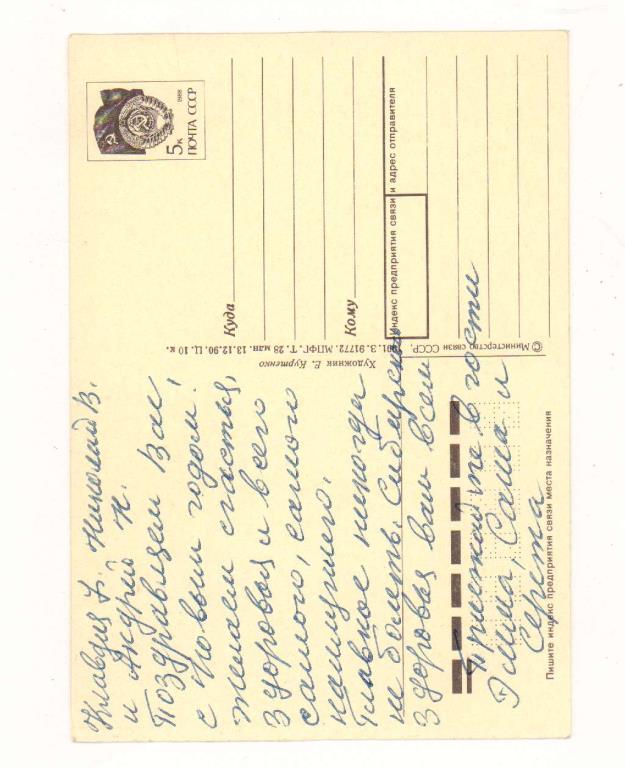 Клавдия Г. Николай В.
и Андрей Н.
Поздравляем Вас,
с Новым годом.
желаем счастья,
здоровья и всего
самого, самого
наилучшего.
Главное никогда
не болеть. Сибирского
здоровья вам всем
Приезжайте в гости
Эмма, Саша и
Сережа
5к
1988
ПОЧТА СССР
Куда
Кому
Индекс предприятия связи и адрес отправителя
Художник Е. Куртенко
© Министерство связи СССР, 1991. З. 91772. МПФГ. Т. 28 млн. 13.12.90. Ц. 10 к.
Пишите индекс предприятия связи места назначения